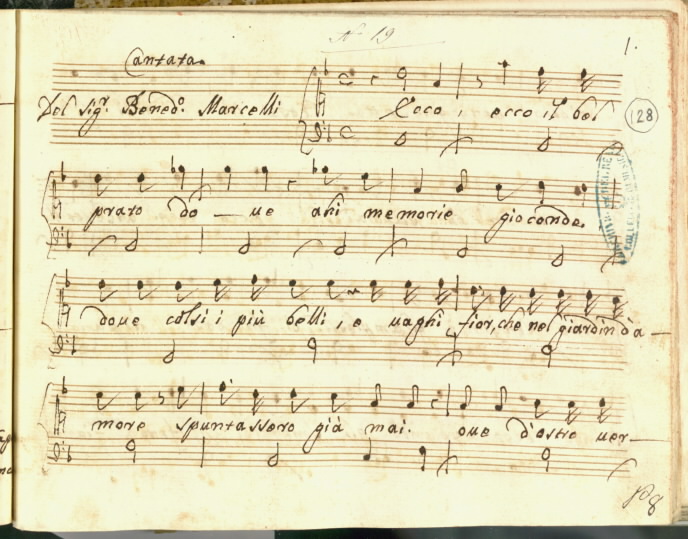 N 19
1.
Cantata.
Del Sigr. Benedo. Marcelli
Ecco, ecco il bel
128
prato do - ue ahi memorie gioconde.
doue colsi i più belli, e uaghi fior, che nel giardin d'a -
more spuntassero già mai. oue d'ostro uer -